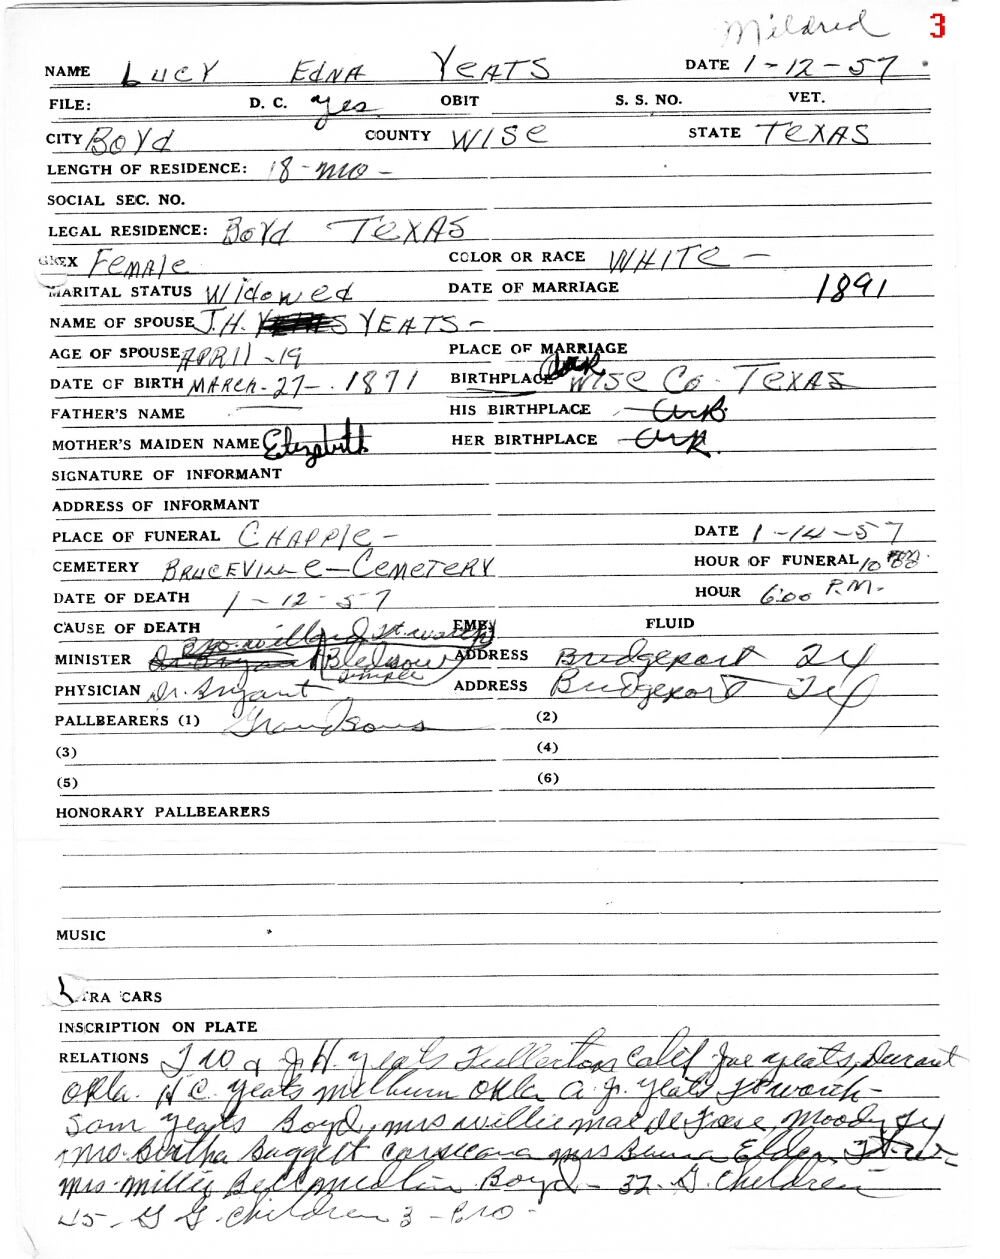 Mildred 3
NAME Lucy Edna Yeats DATE 1-12-57
FILE: D. C. yes OBIT S. S. NO. VET.
CITY Boyd COUNTY Wise STATE Texas
LENGTH OF RESIDENCE: 18-mo-
SOCIAL SEC. NO.
LEGAL RESIDENCE: Boyd Texas
SEX Female COLOR OR RACE WHITE-
MARITAL STATUS Widowed DATE OF MARRIAGE 1891
NAME OF SPOUSE J.H. YEATS-
AGE OF SPOUSE APRIL-19 PLACE OF MARRIAGE
DATE OF BIRTH MARCH-27-1871 BIRTHPLACE Wise Co. Texas
FATHER'S NAME HIS BIRTHPLACE Ark.
MOTHER'S MAIDEN NAME Elizabeth HER BIRTHPLACE Ark.
SIGNATURE OF INFORMANT
ADDRESS OF INFORMANT
PLACE OF FUNERAL CHAPPLE- DATE 1-14-57
CEMETERY BRUCEVILLE-CEMETERY HOUR OF FUNERAL 10
DATE OF DEATH 1-12-57 HOUR 6:00 P.M.
CAUSE OF DEATH EMBY FLUID
Bro. Willard Ft. Worth
MINISTER Bledsow ADDRESS Bridgeport
Temple
PHYSICIAN Dr. Bryant ADDRESS Bridgeport
PALLBEARERS (1) Grandsons (2)
(3) (4)
(5) (6)
HONORARY PALLBEARERS
MUSIC
TRA CARS
INSCRIPTION ON PLATE
RELATIONS J.H. Yeats Fullerton Calif Joe Yeats, Durant
Okla. H C. Yeats Milburn Okla A. J. Yeats Ft Worth-
Sam Yeats Boyd, mrs willie mae Moody
mrs. Bertha Baggett Corsicana mrs Elder, Ft. W-
mrs. Millie Bell Boyd- 32- G. Children
45- G G. Children 3-Bro-